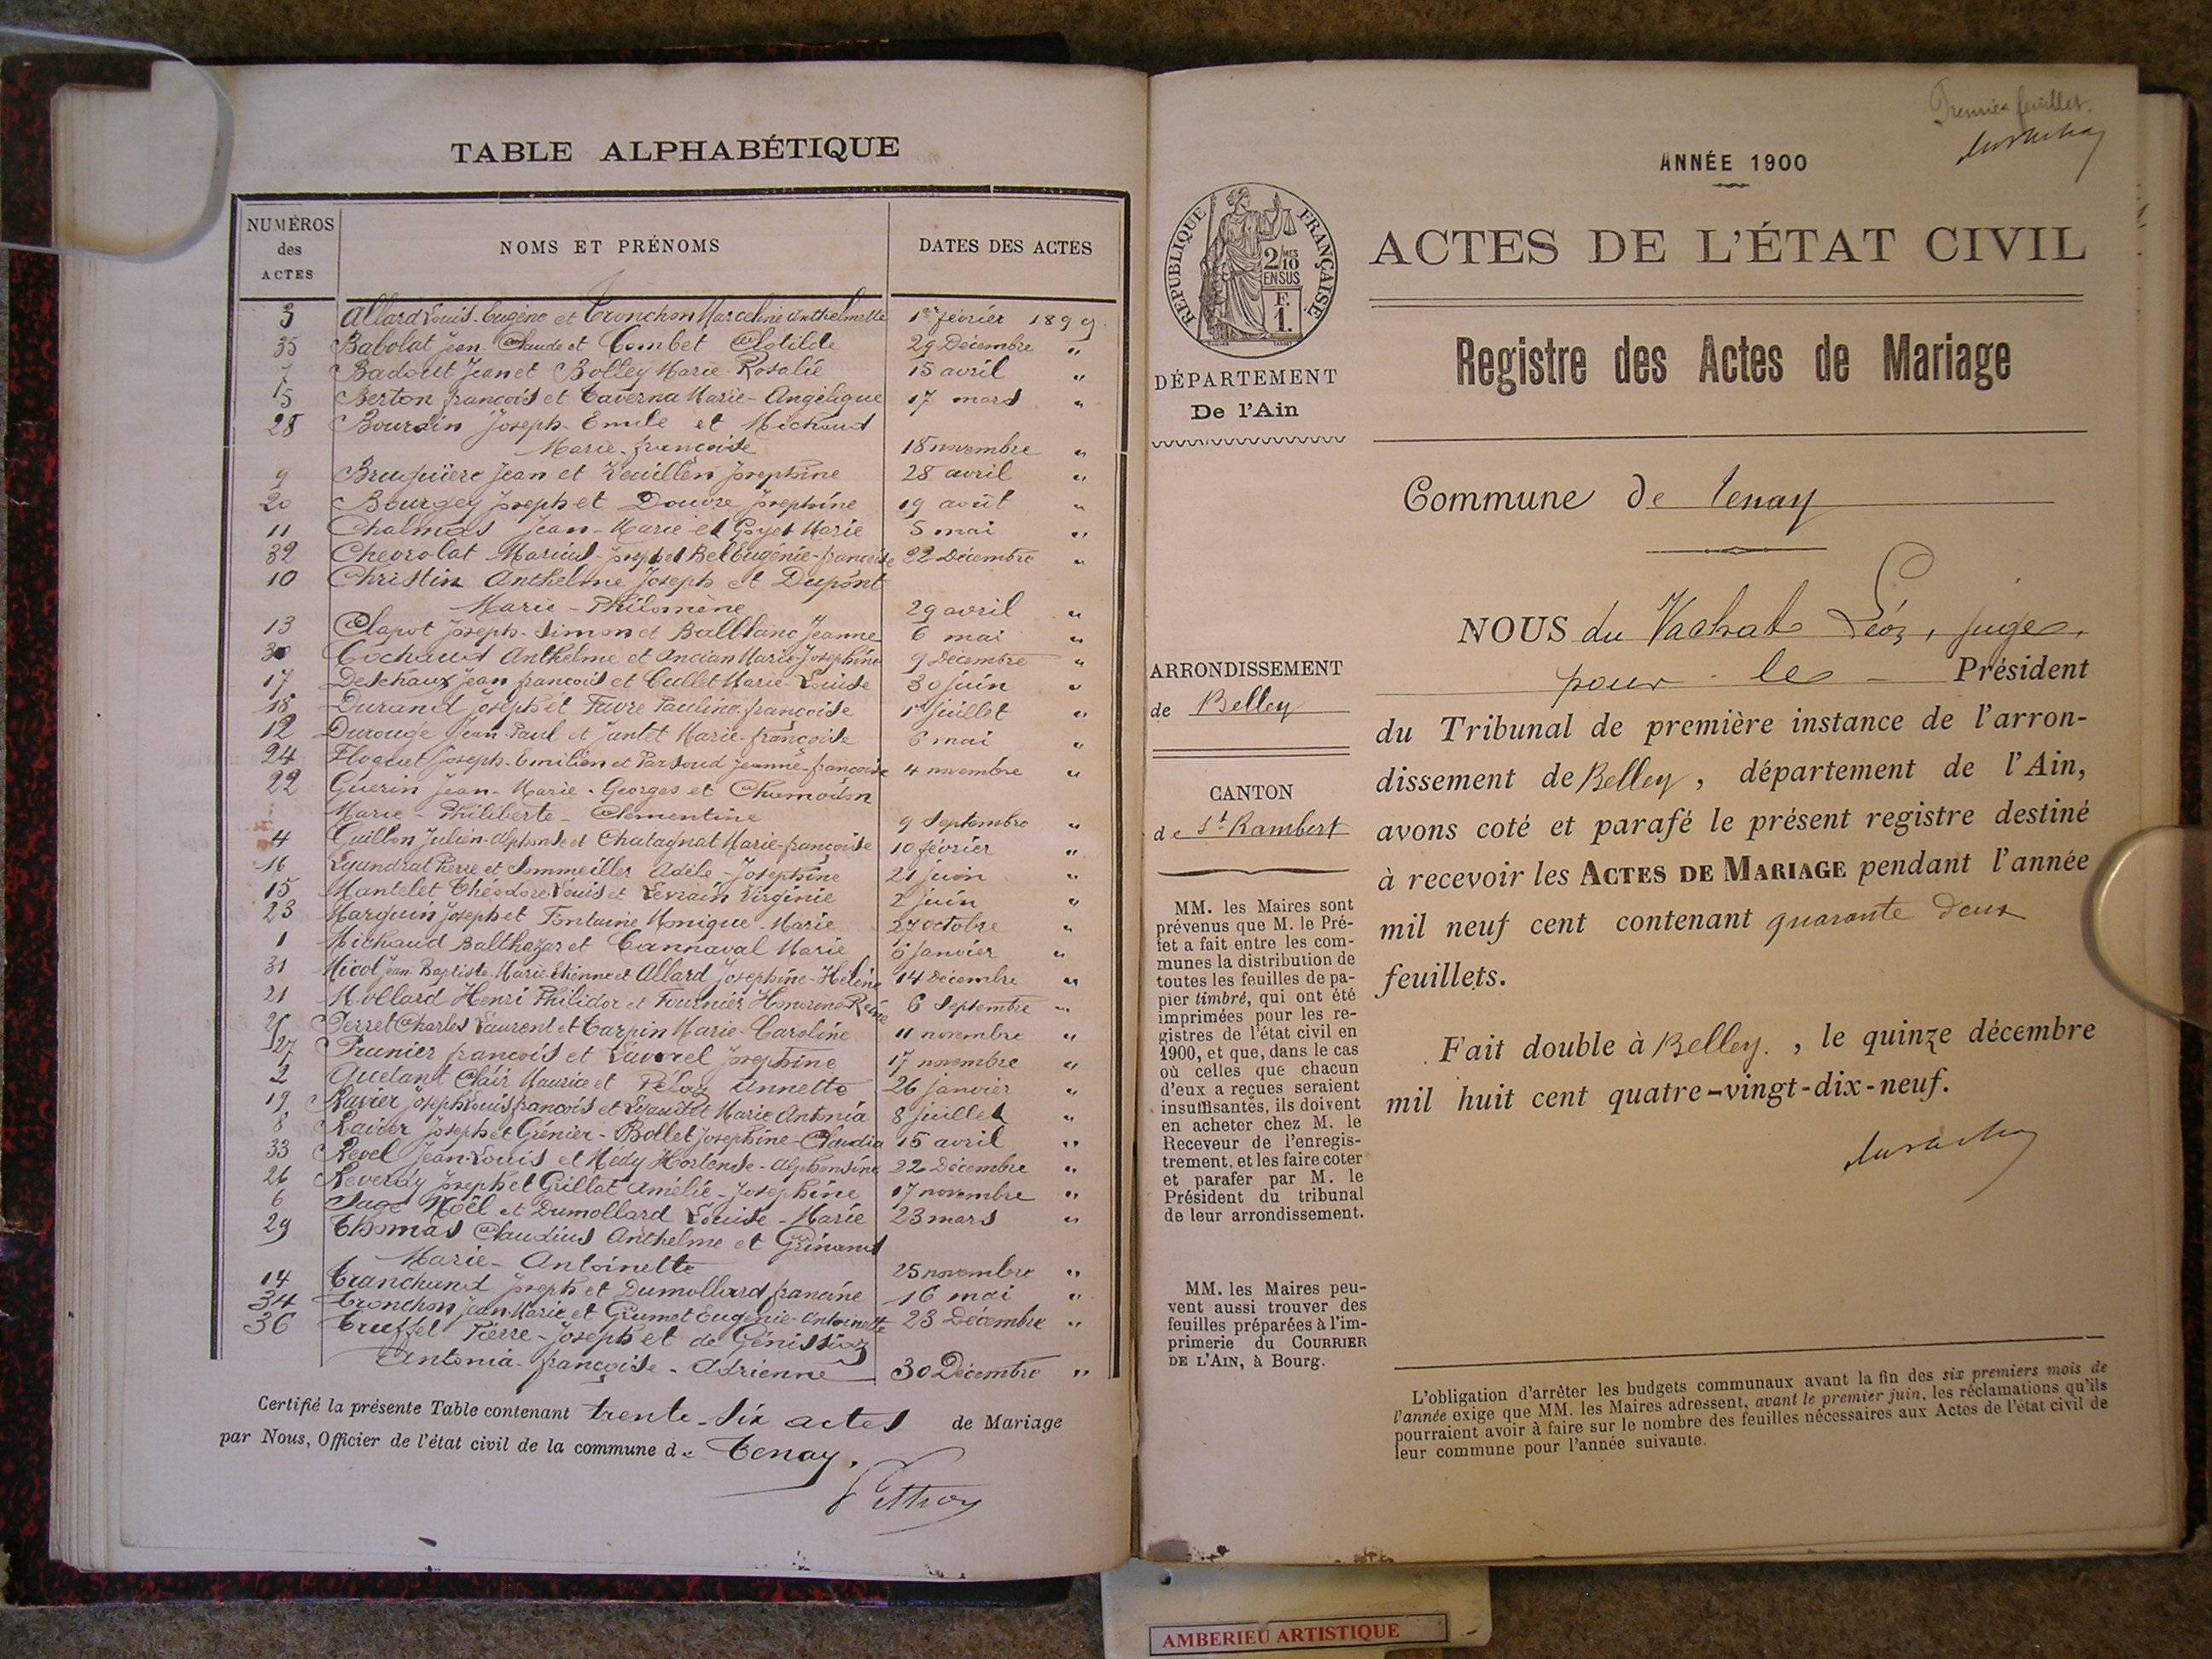 TABLE ALPHABÉTIQUE
NUMÉROS des ACTES
NOMS ET PRÉNOMS
DATES DES ACTES
3 Allard Louis-Eugène et Tronchon Marceline Anthelmette 1er février 1899
35 Babolat Jean-Claude et Combet Clotilde 29 Décembre "
7 Badout Jean et Bolley Marie Rosalie 15 avril "
5 Berton françois et Taverna Marie-Angélique 17 mars "
28 Bourdin Joseph-Emile et Michaud
Marie-françoise 18 novembre "
9 Bruguière Jean et Josephine 28 avril "
20 Bourgey Joseph et Douvre Josephine 19 août "
11 Chalmas Jean-Marie et Goyet Marie 5 mai "
32 Chevrolat Marius-Joseph et Bel Eugénie-françoise 22 Décembre "
10 Christin Anthelme Joseph et Dupont
Marie-Philomène 29 avril "
13 Clapot Joseph-Simon et Ballanc Jeanne 6 mai "
30 Cochaud Anthelme et Ancian Marie-Josephine 9 Décembre "
17 Deschaux Jean françois et Cullet Marie-Louise 30 juin "
18 Durand Joseph et Favre Pauline françoise 1er juillet "
12 Durouge Jean-Paul et Jantet Marie-françoise 6 mai "
24 Floquet Joseph-Emilien et Parsoud Jeanne-françoise 4 novembre "
22 Guerin Jean-Marie-Georges et
Marie-Philiberte-Clémentine 9 Septembre "
4 Guillon Julien-Alphonse et Chatagnat Marie-françoise 10 février "
16 Lyandrat Pierre et Sommeiller Adèle-Josephine 21 juin "
15 Mantelet Théodore-Louis et Levrain Virginie 2 juin "
23 Marquin Joseph et Fontaine Monique-Marie 27 octobre "
1 Michaud Balthazar et Cannaval Marie 5 janvier "
31 Micol Jean-Baptiste-Marie-Etienne et Allard Josephine-Hélène 14 Décembre "
21 Mollard Henri Philidor et Fournier Honorine-Reine 6 Septembre "
25 Perret Charles Laurent et Carpin Marie-Caroline 11 novembre "
27 Prunier françois et Lavorel Josephine 17 novembre "
2 Quetant Clair Maurice et Pélaz Annette 26 janvier "
19 Ravier Joseph Louis françois et Marie Antonia 8 juillet "
8 Ravier Joseph et Grénier-Bollet Josephine-Claudia 15 avril "
33 Revel Jean-Louis et Médy Hortense-Alphonsine 22 Décembre "
26 Reverdy Joseph et Grillat Amélie-Josephine 17 novembre "
6 Sage Noël et Dumollard Louise-Marie 23 mars "
29 Thomas Claudius Anthelme et Grinand
Marie-Antoinette 25 novembre "
14 Tranchand Joseph et Dumollard francine 16 mai "
34 Tronchon Jean-Marie et Grumet Eugénie-Antoinette 23 Décembre "
36 Truffet Pierre-Joseph et de Génissiaz
Antonia-françoise-Adrienne 30 Décembre "
Certifié la présente Table contenant trente-six actes de Mariage
par Nous, Officier de l'état civil de la commune de Tenay.
Premier feuillet.
duvachat
ANNÉE 1900
RÉPUBLIQUE FRANÇAISE
2/10 MES
EN SUS
F.
1.
ACTES DE L'ÉTAT CIVIL
Registre des Actes de Mariage
DÉPARTEMENT
De l'Ain
Commune de Tenay
NOUS du Vachat Léon, juge,
pour le Président
ARRONDISSEMENT
de Belley
du Tribunal de première instance de l'arron-
dissement de Belley, département de l'Ain,
CANTON
de St Rambert
avons coté et parafé le présent registre destiné
à recevoir les ACTES DE MARIAGE pendant l'année
mil neuf cent contenant quarante deux
feuillets.
MM. les Maires sont
prévenus que M. le Pré-
fet a fait entre les com-
munes la distribution de
toutes les feuilles de pa-
pier timbré, qui ont été
imprimées pour les re-
gistres de l'état civil en
1900, et que, dans le cas
où celles que chacun
d'eux a reçues seraient
insuffisantes, ils doivent
en acheter chez M. le
Receveur de l'enregis-
trement, et les faire coter
et parafer par M. le
Président du tribunal
de leur arrondissement.
Fait double à Belley, le quinze décembre
mil huit cent quatre-vingt-dix-neuf.
duvachat
MM. les Maires peu-
vent aussi trouver des
feuilles préparées à l'im-
primerie du COURRIER
DE L'AIN, à Bourg.
L'obligation d'arrêter les budgets communaux avant la fin des six premiers mois de
l'année exige que MM. les Maires adressent, avant le premier juin, les réclamations qu'ils
pourraient avoir à faire sur le nombre des feuilles nécessaires aux Actes de l'état civil de
leur commune pour l'année suivante.
AMBERIEU ARTISTIQUE